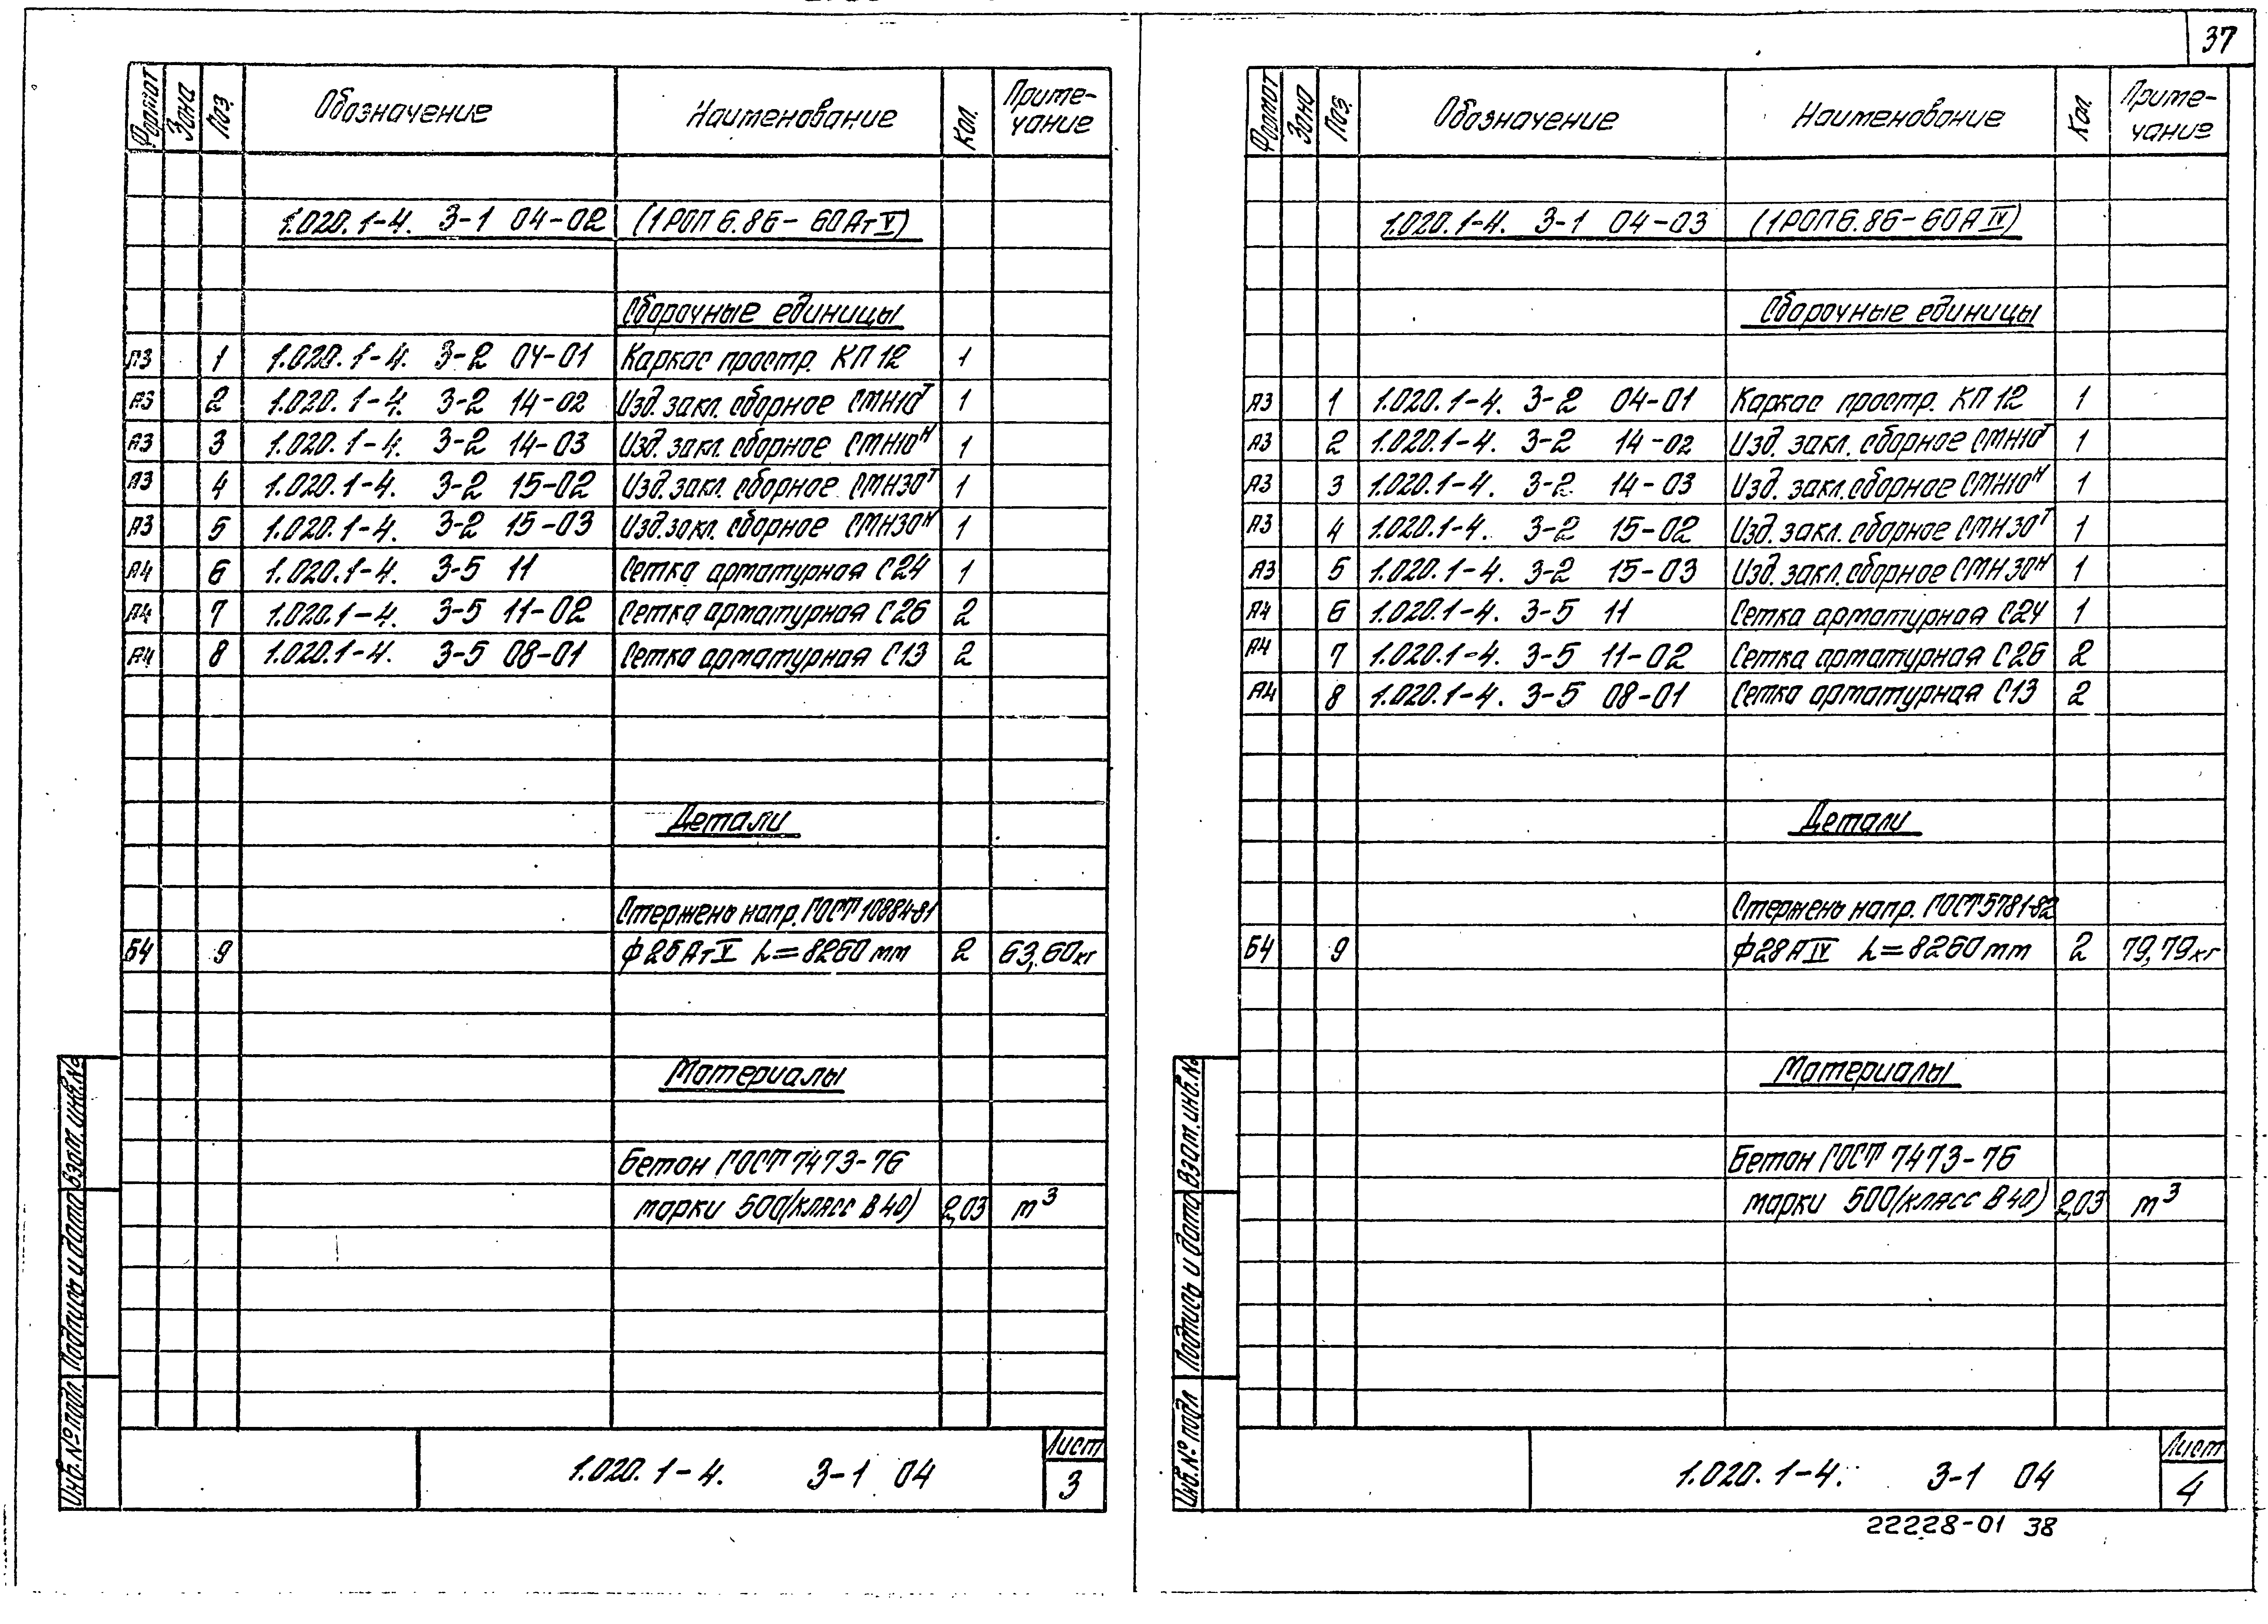 37
Формат Зона Поз. Обозначение Наименование Кол. Приме-
чание
1.020.1-4. 3-1 04-02 (1РОП 6.86-60АтV)
Сборочные единицы
А3 1 1.020.1-4. 3-2 04-01 Каркас простр. КП 12 1
А3 2 1.020.1-4. 3-2 14-02 Изд. закл. сборное СМН10ᵀ 1
А3 3 1.020.1-4. 3-2 14-03 Изд. закл. сборное СМН10ᴴ 1
А3 4 1.020.1-4. 3-2 15-02 Изд. закл. сборное СМН30ᵀ 1
А3 5 1.020.1-4. 3-2 15-03 Изд. закл. сборное СМН30ᴴ 1
А4 6 1.020.1-4. 3-5 11 Сетка арматурная С24 1
А4 7 1.020.1-4. 3-5 11-02 Сетка арматурная С26 2
А4 8 1.020.1-4. 3-5 08-01 Сетка арматурная С13 2
Детали
Стержень напр. ГОСТ 10884-81
Б4 9 ф25АтV L=8260мм 2 63,60кг
Материалы
Бетон ГОСТ 7473-76
марки 500(класс В40) 2,03 м³
Инв.№ подл. Подпись и дата Взам. инв.№
1.020.1-4. 3-1 04
Лист
3
Формат Зона Поз. Обозначение Наименование Кол. Приме-
чание
1.020.1-4. 3-1 04-03 (1РОП6.86-60АIV)
Сборочные единицы
А3 1 1.020.1-4. 3-2 04-01 Каркас простр. КП 12 1
А3 2 1.020.1-4. 3-2 14-02 Изд. закл. сборное СМН10ᵀ 1
А3 3 1.020.1-4. 3-2 14-03 Изд. закл. сборное СМН10ᴴ 1
А3 4 1.020.1-4. 3-2 15-02 Изд. закл. сборное СМН30ᵀ 1
А3 5 1.020.1-4. 3-2 15-03 Изд. закл. сборное СМН30ᴴ 1
А4 6 1.020.1-4. 3-5 11 Сетка арматурная С24 1
А4 7 1.020.1-4. 3-5 11-02 Сетка арматурная С26 2
А4 8 1.020.1-4. 3-5 08-01 Сетка арматурная С13 2
Детали
Стержень напр. ГОСТ5781-82
Б4 9 ф28АIV L=8260мм 2 79,79кг
Материалы
Бетон ГОСТ 7473-76
марки 500(класс В40) 2,03 м³
Инв.№ подл Подпись и дата Взам. инв.№
1.020.1-4. 3-1 04
Лист
4
22228-01 38